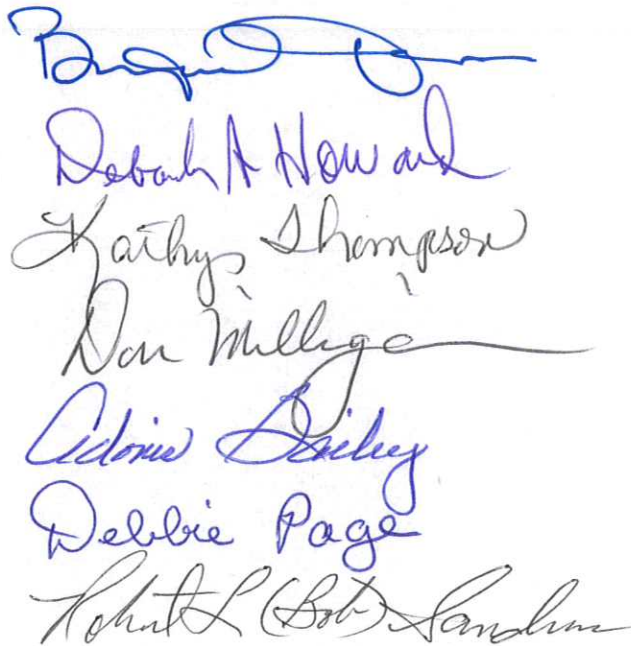 Deborah A Howard
Kathy Thompson
Don Milligan
Adonis Bailey
Debbie Page
Robert L (Bob) Sanders